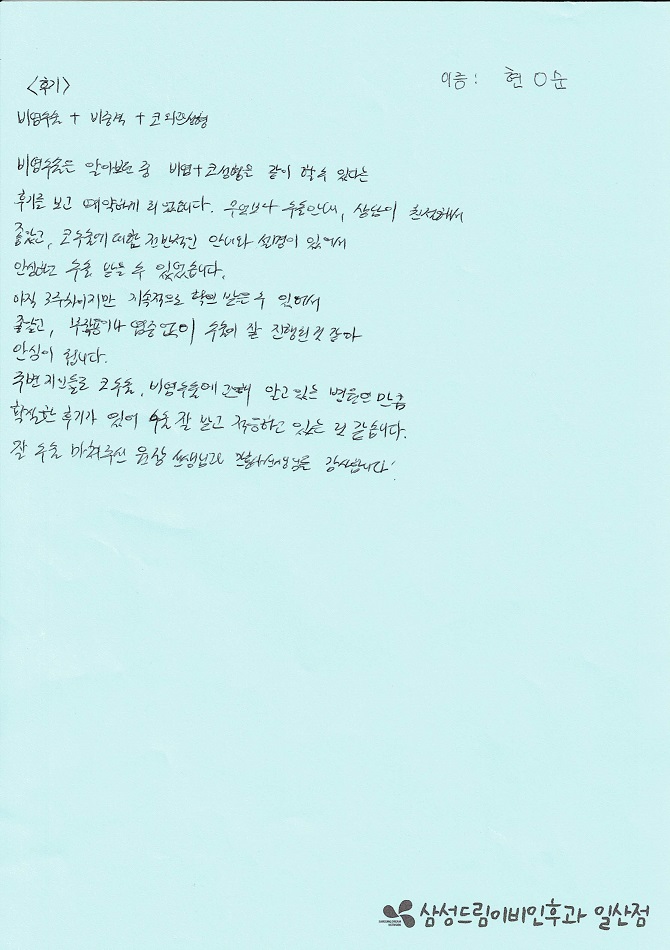 <후기>
이름: 현○순
비염수술 + 비중격 + 코 성형
비염수술은 알아보던 중 비염+코성형은 같이 할 수 있다는
후기를 보고 예약하게 되었습니다. 수술안내, 상담이 친절해서
좋았고, 코수술에 대한 전반적인 안내와 설명이 있어서
안심하고 수술 받을 수 있었습니다.
아직 3주차이지만 지속적으로 확인 받을 수 있어서
좋았고, 부작용이나 염증 없이 수술이 잘 진행된것 같아
안심이 됩니다.
주변 지인들로 코수술, 비염수술에 알고 있는 병원인 만큼
확실한 후기가 있어 수술 잘 받고 적응하고 있는 것 같습니다.
잘 수술 마쳐주신 원장 선생님과 감사합니다!
삼성드림이비인후과 일산점